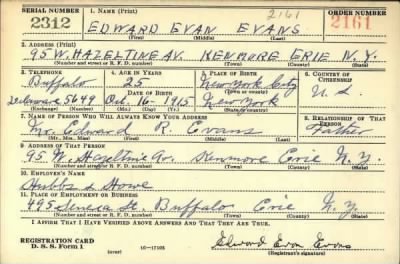 SERIAL NUMBER 1. NAME (Print) ORDER NUMBER
2312 EDWARD EVAN EVANS 2161 2161
(First) (Middle) (Last)
2. ADDRESS (Print)
95 W. HAZELTINE AV. KENMORE ERIE N.Y.
(Number and street or R. F. D. number) (Town) (County) (State)
3. TELEPHONE 4. AGE IN YEARS 5. PLACE OF BIRTH 6. COUNTRY OF CITIZENSHIP
Buffalo 25 New York City
DATE OF BIRTH (Town or county)
Delaware 5649 Oct. 16 1915 New York U.S.
(Exchange) (Number) (Mo.) (Day) (Yr.) (State or country)
7. NAME OF PERSON WHO WILL ALWAYS KNOW YOUR ADDRESS 8. RELATIONSHIP OF THAT PERSON
Mr. Edward R. Evans Father
(Mr., Mrs., Miss) (First) (Middle) (Last)
9. ADDRESS OF THAT PERSON
95 W. Hazeltine Av. Kenmore Erie N.Y.
(Number and street or R. F. D. number) (Town) (County) (State)
10. EMPLOYER'S NAME
Hubbs & Howe
11. PLACE OF EMPLOYMENT OR BUSINESS
495 Seneca St. Buffalo Erie N.Y.
(Number and street or R. F. D. number) (Town) (County) (State)
I AFFIRM THAT I HAVE VERIFIED ABOVE ANSWERS AND THAT THEY ARE TRUE.
REGISTRATION CARD
D. S. S. Form 1 (over) 16—17105 Edward Evan Evans
(Registrant's signature)